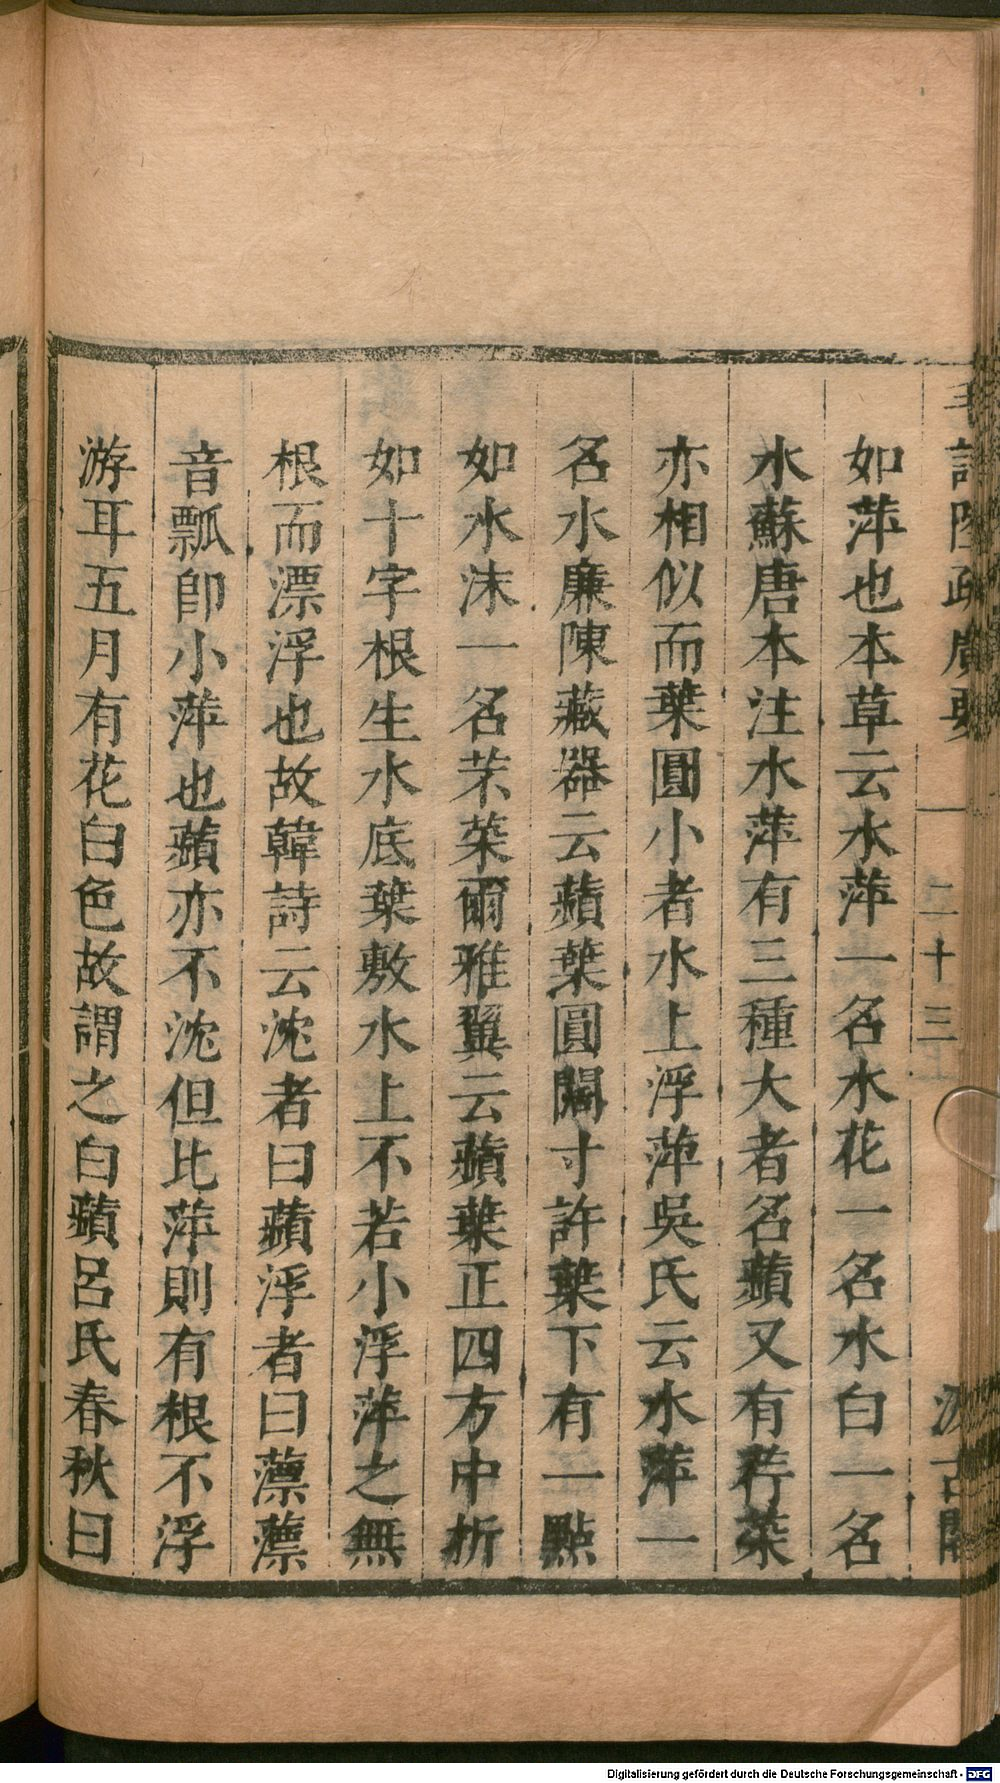 如萍也本草云水萍一名水花一名水白一名
水蘇唐本注水萍有三種大者名蘋又有荇菜
亦相似而葉圓小者水上浮萍吳氏云水萍一
名水廉陳藏器云蘋葉圓闊寸許葉下有一點
如水沫一名芣菜爾雅翼云蘋葉正四方中折
如十字根生水底葉敷水上不若小浮萍之無
根而漂浮也故韓詩云沈者曰蘋浮者曰薸薸
音瓢即小萍也蘋亦不沈但比萍則有根不浮
游耳五月有花白色故謂之白蘋呂氏春秋曰
二十三
Digitalisierung gefördert durch die Deutsche Forschungsgemeinschaft - DFG